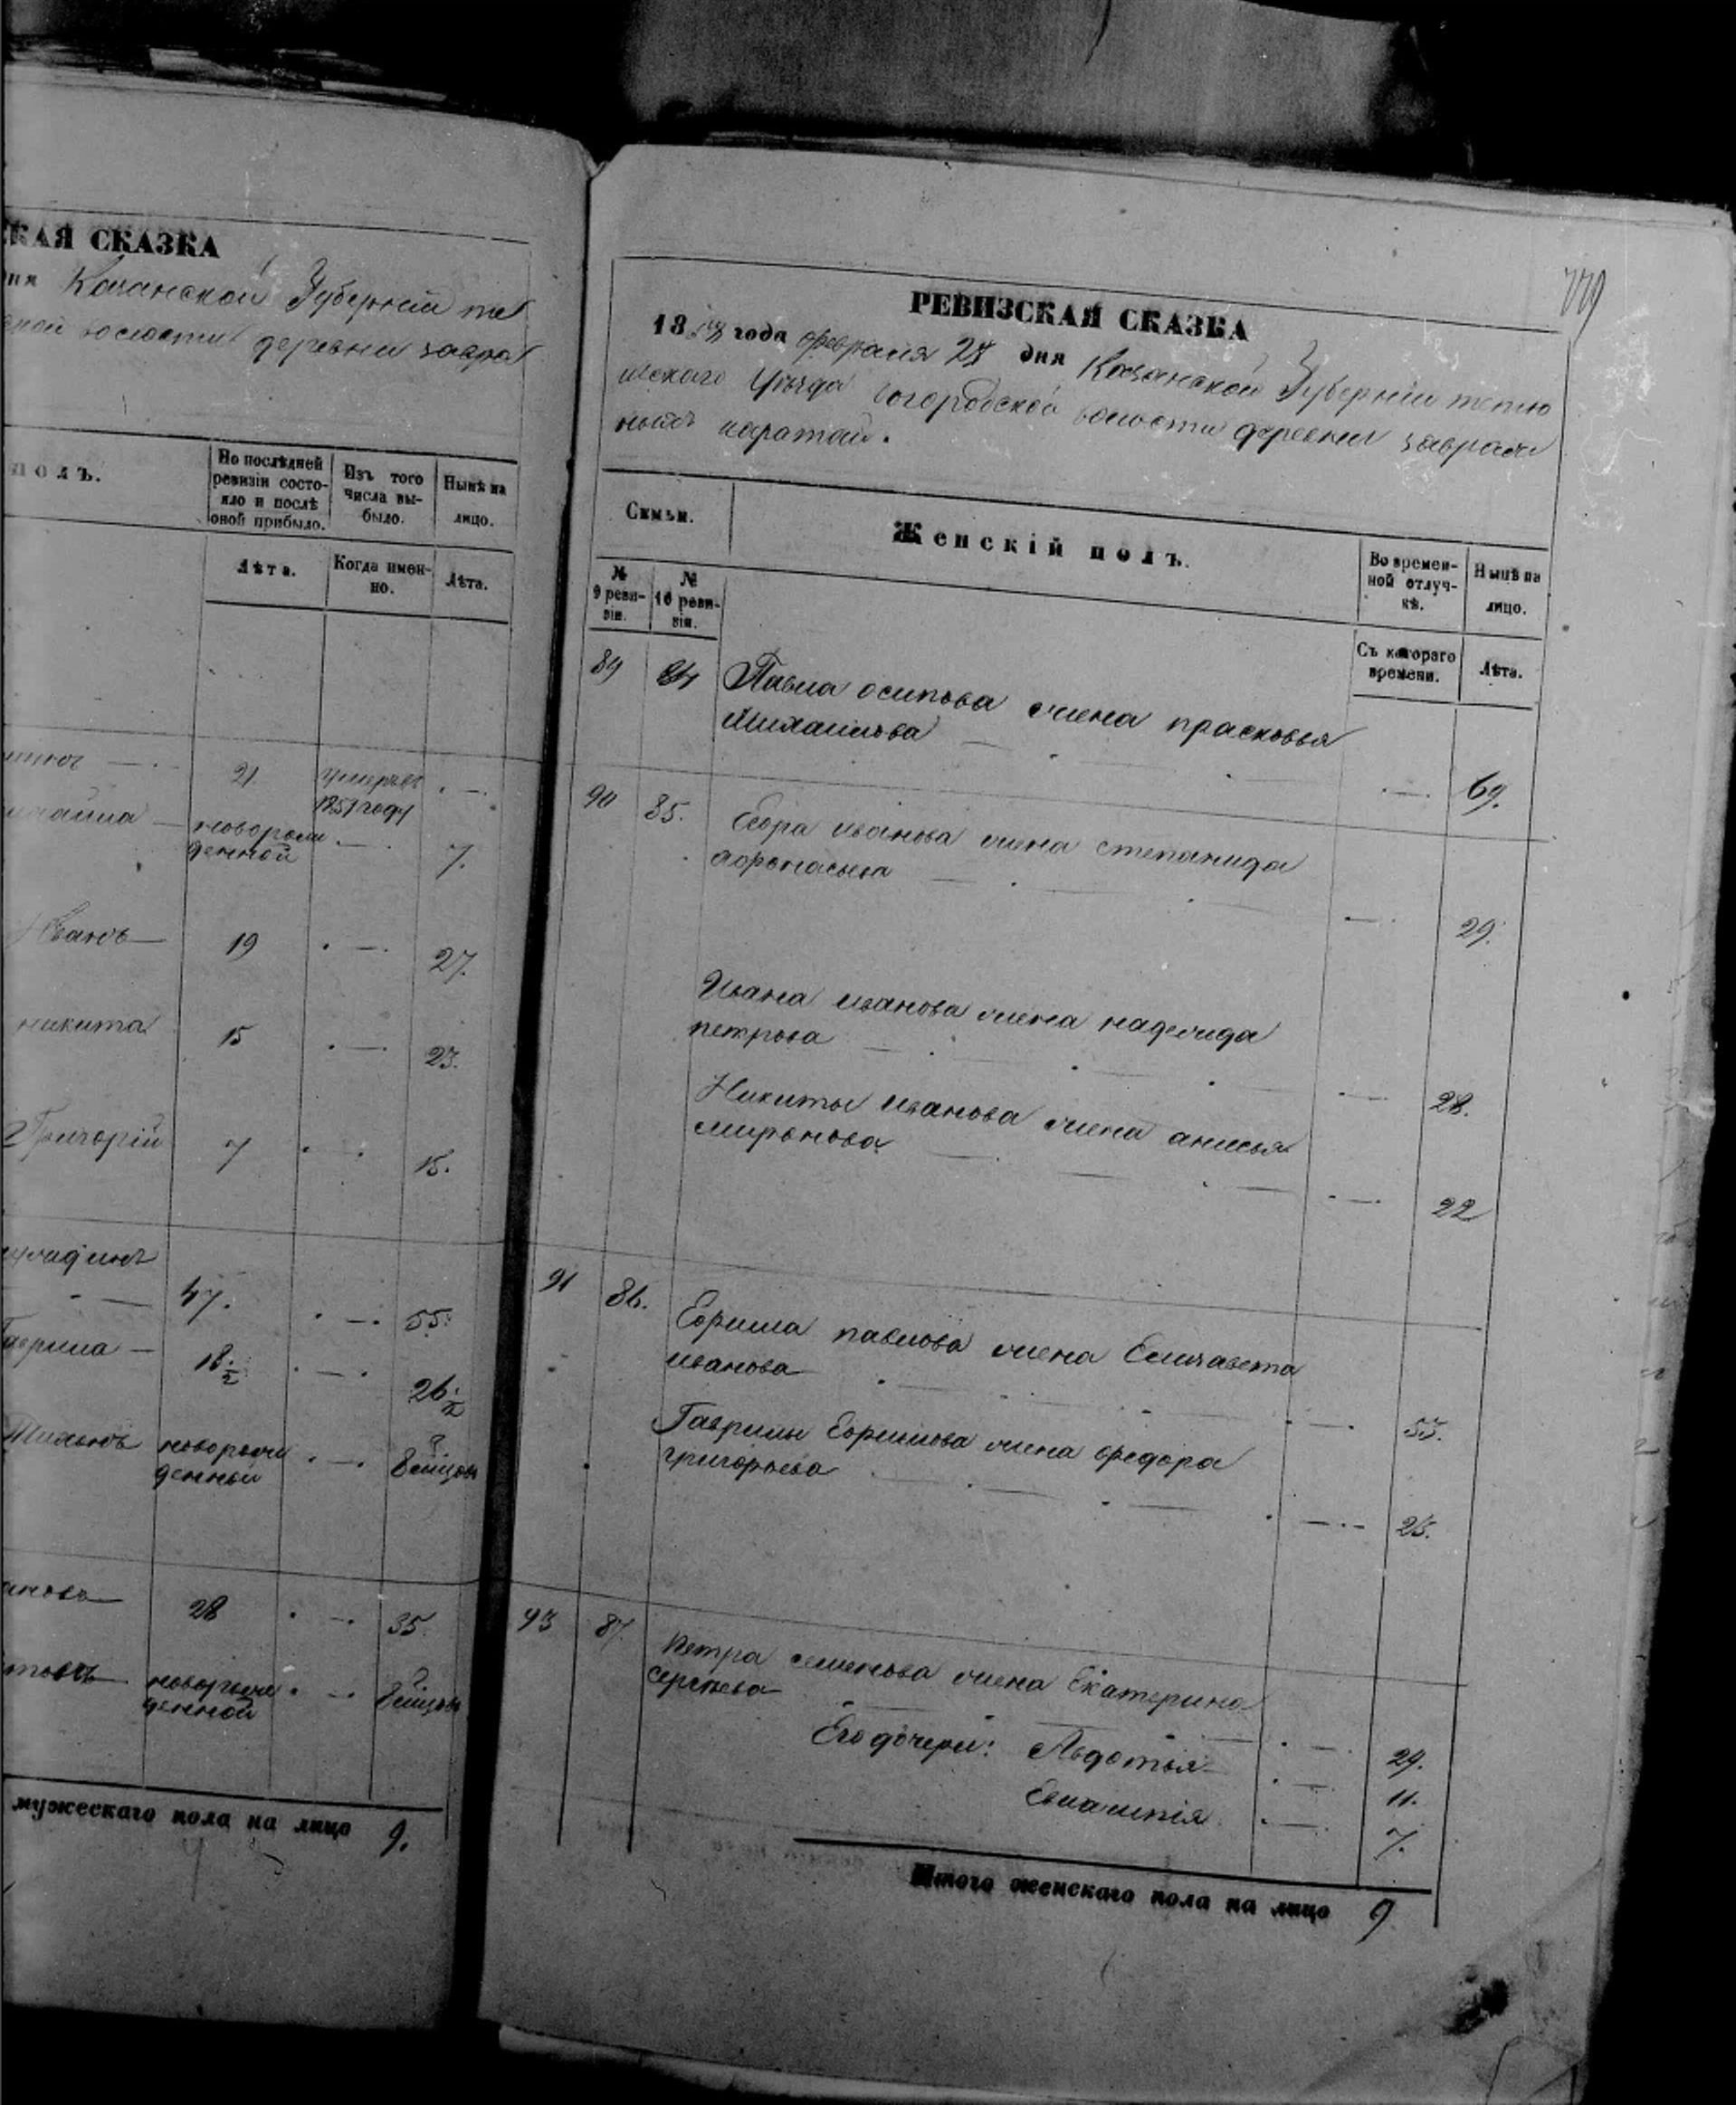 СКАЯ СКАЗКА
дня Казанской Губернии те
ской волости деревни завра
полъ.
По послѣдней ревизіи состояло и послѣ оной прибыло.
Изъ того числа выбыло.
Нынѣ на лицо.
Лѣта.
Когда именно.
Лѣта.
21 умеръ 1851 году
новорожденной 7.
Иванъ 19 27.
никита 15 23.
Григорій 7 15.
47. 55.
Гаврила 18 1/2 26 1/2
новорожденной
28 35.
новорожденной
мужескаго пола на лицо 9.
779
РЕВИЗСКАЯ СКАЗКА
1858 года февраля дня Казанской Губерніи тетю
шскаго уѣзда богородской волости деревни завраж
ныхъ каратай.
Семьи.
Женскій полъ.
Во временной отлучкѣ.
Нынѣ на лицо.
№ 9 ревизіи.
№ 10 ревизіи.
Съ котораго времени.
Лѣта.
89 84 Павла осипова жена прасковья
Михайлова 69.
90 85. Егора иванова жена степанида
афонасьева 29.
Ивана иванова жена надежда
петрова 28.
Никиты иванова жена анисья
миронова 22
91 86. Ефима павлова жена Елизавета
иванова 55.
Гаврилы Ефимова жена федора
григорьева 26.
93 87. петра семенова жена Екатерина
сергѣева 29.
Его дочери: Авдотья 11.
Евлампія 7.
Итого женскаго пола на лицо 9